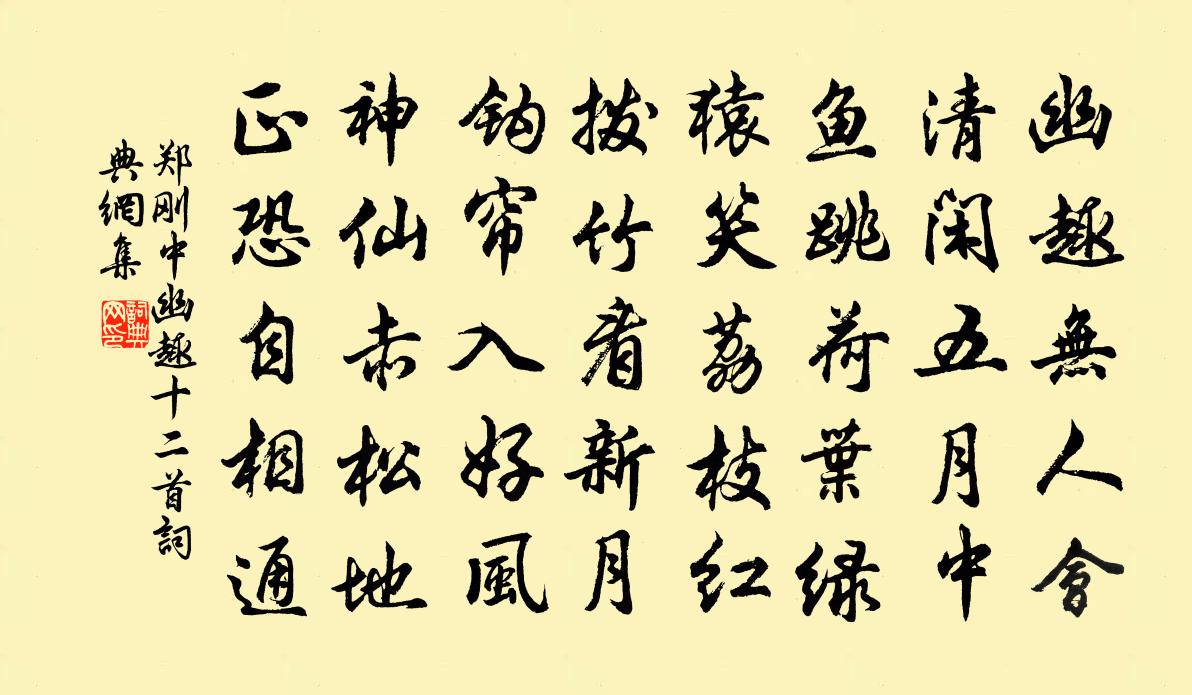 幽趣無人會
清閑五月中
鱼跳荷葉緑
猿笑荔枝红
拨竹看新月
鈎帘入好風
神仙赤松地
正恐自相通
郑刚中幽趣十二首詞
典網集
詞典网印